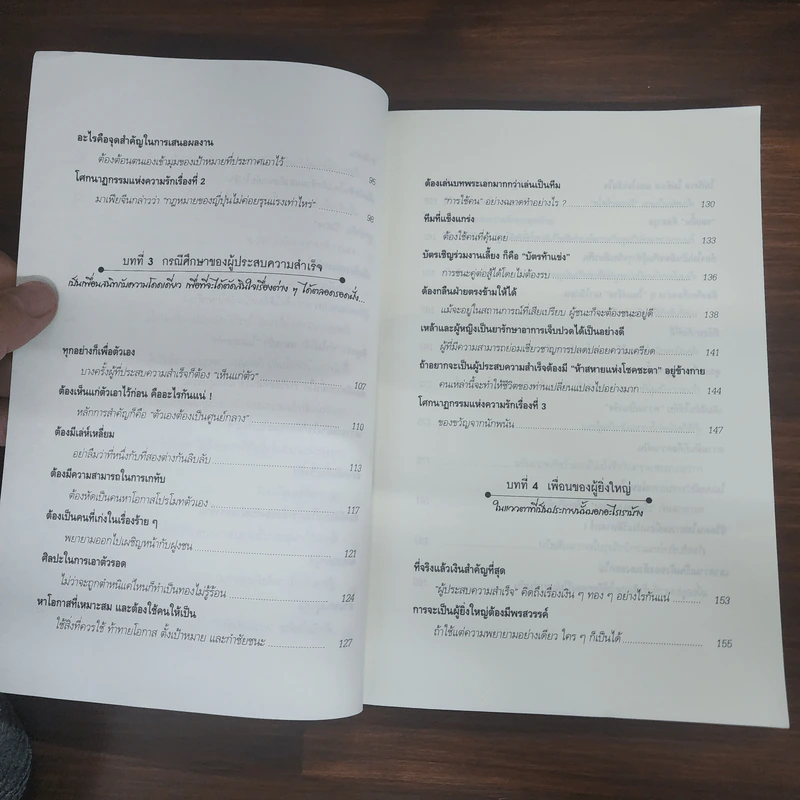 อะไรคือจุดสำคัญในการเสนอผลงาน
ต้องต้อนตนเองเข้ามุมของเป้าหมายที่ประกาศเอาไว้ 95
โศกนาฏกรรมแห่งความรักเรื่องที่ 2
มาเฟียจีนกล่าวว่า "กฎหมายของญี่ปุ่นไม่ค่อยรุนแรงเท่าไหร่" 98
บทที่ 3 กรณีศึกษาของผู้ประสบความสำเร็จ
เป็นเพื่อนสนิทกับความโดดเดี่ยว เพื่อที่จะได้ตัดสินใจเรื่องต่าง ๆ ได้ตลอดรอดฝั่ง...
ทุกอย่างก็เพื่อตัวเอง
บางครั้งผู้ที่ประสบความสำเร็จก็ต้อง "เห็นแก่ตัว" 107
ต้องเห็นแก่ตัวเอาไว้ก่อน คืออะไรกันแน่ !
หลักการสำคัญก็คือ "ตัวเองต้องเป็นศูนย์กลาง" 110
ต้องมีเล่ห์เหลี่ยม
อย่าลืมว่าที่หนึ่งกับที่สองต่างกันลิบลับ 113
ต้องมีความสามารถในการเกทับ
ต้องหัดเป็นคนหาโอกาสโปรโมทตัวเอง 117
ต้องเป็นคนที่เก่งในเรื่องร้าย ๆ
พยายามออกไปเผชิญหน้ากับฝูงชน 121
ศิลปะในการเอาตัวรอด
ไม่ว่าจะถูกตำหนิแค่ไหนก็ทำเป็นทองไม่รู้ร้อน 124
หาโอกาสที่เหมาะสม และต้องใช้คนให้เป็น
ใช้สิ่งที่ควรใช้ ท้าทายโอกาส ตั้งเป้าหมาย และกำชัยชนะ 127
ต้องเล่นบทพระเอกมากกว่าเล่นเป็นทีม
"การใช้คน" อย่างฉลาดทำอย่างไร ? 130
ทีมที่แข็งแกร่ง
ต้องใช้คนที่คุ้นเคย 133
บัตรเชิญร่วมงานเลี้ยง ก็คือ "บัตรท้าแข่ง"
การชนะคู่ต่อสู้ได้โดยไม่ต้องรบ 136
ต้องกลืนฝ่ายตรงข้ามให้ได้
แม้จะอยู่ในสถานการณ์ที่เสียเปรียบ ผู้ชนะก็จะต้องชนะอยู่ดี 138
เหล้าและผู้หญิงเป็นยารักษาอาการเจ็บปวดได้เป็นอย่างดี
ผู้ที่มีความสามารถย่อมเชี่ยวชาญการปลดปล่อยความเครียด 141
ถ้าอยากจะเป็นผู้ประสบความสำเร็จต้องมี "ห้าสหายแห่งโชคชะตา" อยู่ข้างกาย
คนเหล่านี้จะทำให้ชีวิตของท่านเปลี่ยนแปลงไปอย่างมาก 144
โศกนาฏกรรมแห่งความรักเรื่องที่ 3
ของขวัญจากนักพนัน 147
บทที่ 4 เพื่อนของผู้ยิ่งใหญ่
ในแววตาที่เป็นประกายนั้นบอกอะไรเราบ้าง
ที่จริงแล้วเงินสำคัญที่สุด
"ผู้ประสบความสำเร็จ" คิดถึงเรื่องเงิน ๆ ทอง ๆ อย่างไรกันแน่ 153
การจะเป็นผู้ยิ่งใหญ่ต้องมีพรสวรรค์
ถ้าใช้แต่ความพยายามอย่างเดียว ใคร ๆ ก็เป็นได้ 155